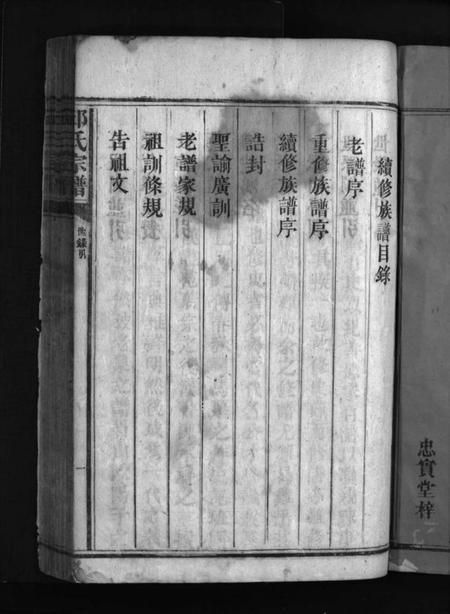 續修族譜目錄
老譜序
重修族譜序
續修族譜序
誥封
聖諭廣訓
老譜家規
祖訓條規
告祖文
氏宗譜
一
忠實堂梓